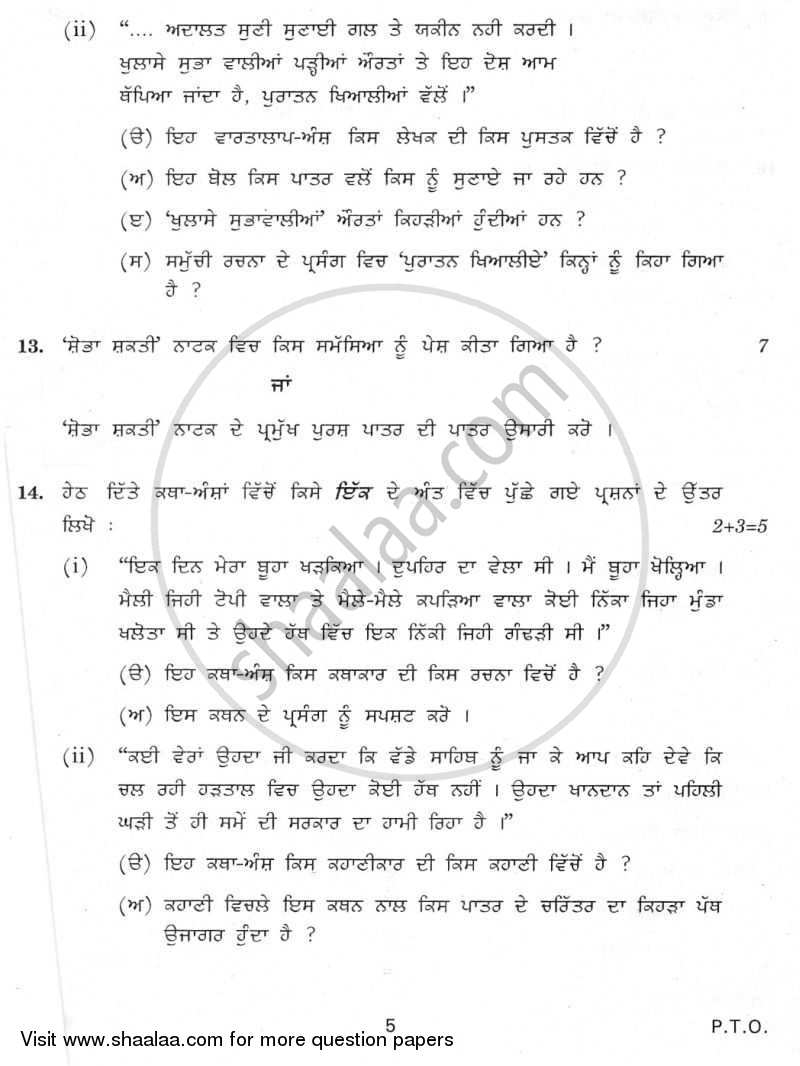 (ii) “.... ਅਦਾਲਤ ਸੁਣੀ ਸੁਣਾਈ ਗਲ ਤੇ ਯਕੀਨ ਨਹੀ ਕਰਦੀ ।
ਖੁਲਾਸੇ ਸੁਭਾ ਵਾਲੀਆਂ ਪੜ੍ਹੀਆਂ ਔਰਤਾਂ ਤੇ ਇਹ ਦੋਸ਼ ਆਮ
ਥੱਪਿਆ ਜਾਂਦਾ ਹੈ, ਪੁਰਾਤਨ ਖਿਆਲੀਆਂ ਵੱਲੋਂ ।”
(ੳ) ਇਹ ਵਾਰਤਾਲਾਪ-ਅੰਸ਼ ਕਿਸ ਲੇਖਕ ਦੀ ਕਿਸ ਪੁਸਤਕ ਵਿੱਚੋਂ ਹੈ ?
(ਅ) ਇਹ ਬੋਲ ਕਿਸ ਪਾਤਰ ਵਲੋਂ ਕਿਸ ਨੂੰ ਸੁਣਾਏ ਜਾ ਰਹੇ ਹਨ ?
(ੲ) ‘ਖੁਲਾਸੇ ਸੁਭਾਵਾਲੀਆਂ’ ਔਰਤਾਂ ਕਿਹੜੀਆਂ ਹੁੰਦੀਆਂ ਹਨ ?
(ਸ) ਸਮੁੱਚੀ ਰਚਨਾ ਦੇ ਪ੍ਰਸੰਗ ਵਿਚ ‘ਪੁਰਾਤਨ ਖਿਆਲੀਏ’ ਕਿਨ੍ਹਾਂ ਨੂੰ ਕਿਹਾ ਗਿਆ
ਹੈ ?
13. ‘ਸ਼ੋਭਾ ਸ਼ਕਤੀ’ ਨਾਟਕ ਵਿਚ ਕਿਸ ਸਮੱਸਿਆ ਨੂੰ ਪੇਸ਼ ਕੀਤਾ ਗਿਆ ਹੈ ? 7
ਜਾਂ
‘ਸ਼ੋਭਾ ਸ਼ਕਤੀ’ ਨਾਟਕ ਦੇ ਪ੍ਰਮੁੱਖ ਪੁਰਸ਼ ਪਾਤਰ ਦੀ ਪਾਤਰ ਉਸਾਰੀ ਕਰੋ ।
14. ਹੇਠ ਦਿੱਤੇ ਕਥਾ-ਅੰਸ਼ਾਂ ਵਿੱਚੋਂ ਕਿਸੇ ਇੱਕ ਦੇ ਅੰਤ ਵਿੱਚ ਪੁੱਛੇ ਗਏ ਪ੍ਰਸ਼ਨਾਂ ਦੇ ਉੱਤਰ
ਲਿਖੋ : 2+3=5
(i) “ਇਕ ਦਿਨ ਮੇਰਾ ਬੂਹਾ ਖੜਕਿਆ । ਦੁਪਹਿਰ ਦਾ ਵੇਲਾ ਸੀ । ਮੈਂ ਬੂਹਾ ਖੋਲ੍ਹਿਆ ।
ਮੈਲੀ ਜਿਹੀ ਟੋਪੀ ਵਾਲਾ ਤੇ ਮੈਲੇ-ਮੈਲੇ ਕਪੜਿਆ ਵਾਲਾ ਕੋਈ ਨਿੱਕਾ ਜਿਹਾ ਮੁੰਡਾ
ਖਲੋਤਾ ਸੀ ਤੇ ਉਹਦੇ ਹੱਥ ਵਿੱਚ ਇਕ ਨਿੱਕੀ ਜਿਹੀ ਗੰਢੜੀ ਸੀ ।”
(ੳ) ਇਹ ਕਥਾ-ਅੰਸ਼ ਕਿਸ ਕਥਾਕਾਰ ਦੀ ਕਿਸ ਰਚਨਾ ਵਿਚੋਂ ਹੈ ?
(ਅ) ਇਸ ਕਥਨ ਦੇ ਪ੍ਰਸੰਗ ਨੂੰ ਸਪਸ਼ਟ ਕਰੋ ।
(ii) “ਕਈ ਵੇਰਾਂ ਉਹਦਾ ਜੀ ਕਰਦਾ ਕਿ ਵੱਡੇ ਸਾਹਿਬ ਨੂੰ ਜਾ ਕੇ ਆਪ ਕਹਿ ਦੇਵੇ ਕਿ
ਚਲ ਰਹੀ ਹੜਤਾਲ ਵਿਚ ਉਹਦਾ ਕੋਈ ਹੱਥ ਨਹੀਂ । ਉਹਦਾ ਖਾਨਦਾਨ ਤਾਂ ਪਹਿਲੀ
ਘੜੀ ਤੋਂ ਹੀ ਸਮੇਂ ਦੀ ਸਰਕਾਰ ਦਾ ਹਾਮੀ ਰਿਹਾ ਹੈ ।”
(ੳ) ਇਹ ਕਥਾ-ਅੰਸ਼ ਕਿਸ ਕਹਾਣੀਕਾਰ ਦੀ ਕਿਸ ਕਹਾਣੀ ਵਿੱਚੋਂ ਹੈ ?
(ਅ) ਕਹਾਣੀ ਵਿਚਲੇ ਇਸ ਕਥਨ ਨਾਲ ਕਿਸ ਪਾਤਰ ਦੇ ਚਰਿੱਤਰ ਦਾ ਕਿਹੜਾ ਪੱਖ
ਉਜਾਗਰ ਹੁੰਦਾ ਹੈ ?
shaalaa.com
5 P.T.O.
Visit www.shaalaa.com for more question papers